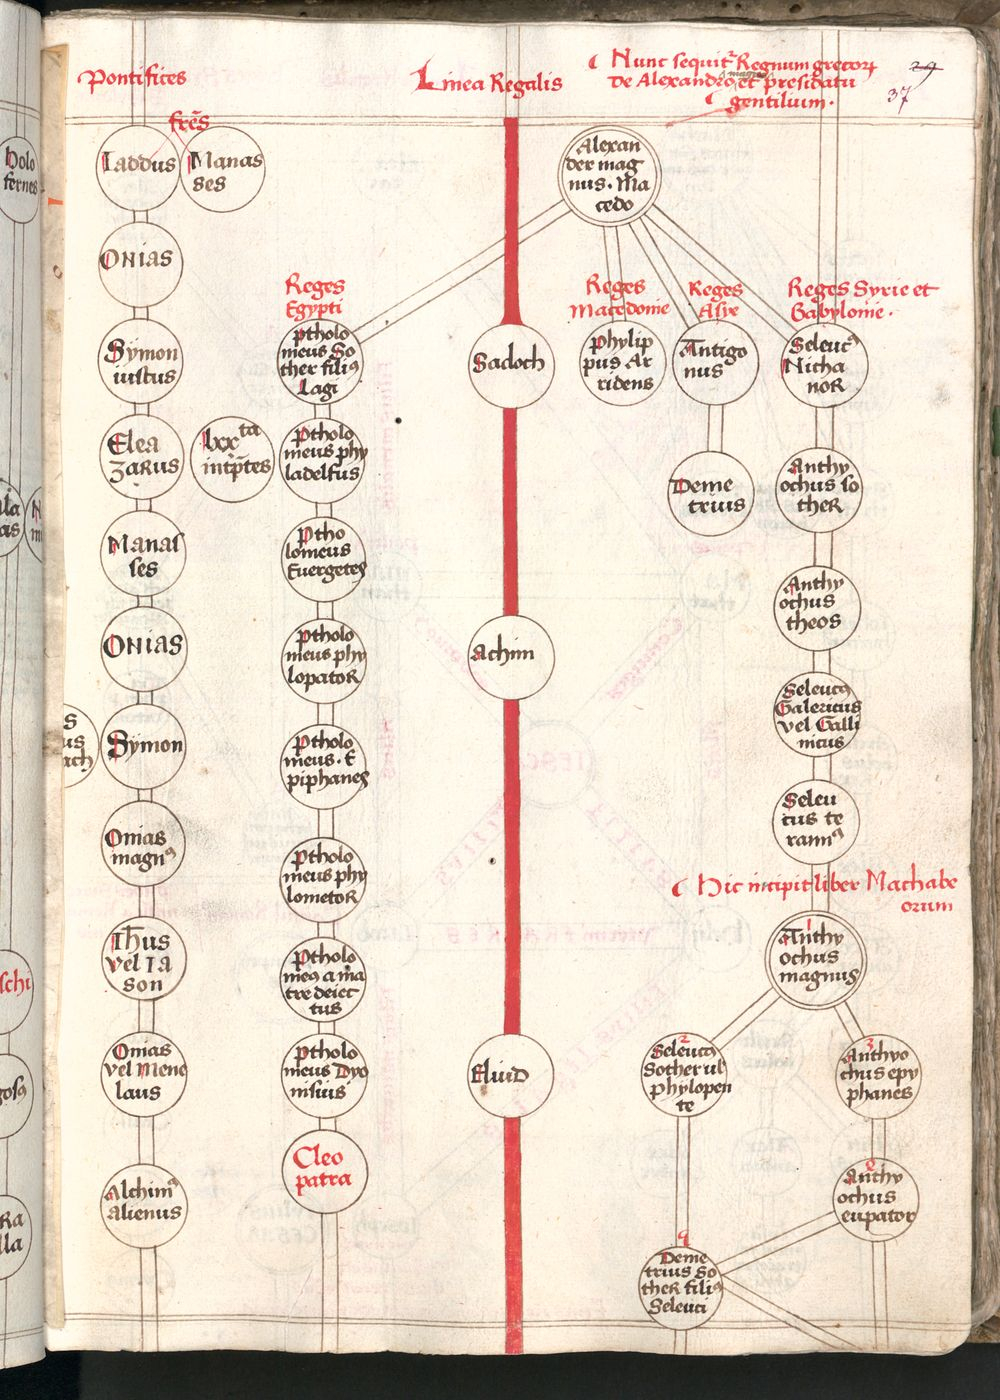 Pontifices
Linea Regalis
Nunc sequit᷑ Regnum grecoꝝ
de Alexandro magno et presidatu
gentilium.
29
37
frēs
Iaddus
Manas
ses
Onias
Symon
iustus
Elea
zarus
lxx ta
intp̄tes
Manas
ses
Onias
Symon
Onias
magnꝰ
Ihūs
vel Ia
son
Onias
vel Mene
laus
Alchimꝰ
alienus
Reges
Egypti
Ptholo
meus So
ther filiꝰ
Lagi
Ptholo
meus phy
ladelfus
Ptho
lomeus
Euergetes
Ptholo
meus phy
lopator
Ptholo
meus. E
piphanes
Ptholo
meus phy
lometor
Ptholo
meꝰ a ma
tre deiec
tus
Ptholo
meus Dyo
nisius
Cleo
patra
Sadoch
Achim
Eliud
Alexan
der mag
nus. Ma
cedo
Reges
Macedonie
Phylip
pus Ar
ridens
Reges
Asye
Antigo
nusꝰ
Deme
trius
Reges Syrie et
Babylonie.
Seleucꝰ
Nicha
nor
Anthy
ochus so
ther
Anthy
ochus
theos
Seleucꝰ
Galericus
vel Galli
nicus
Seleu
cus te
rannꝰ
Hic incipit liber Machabe
orum
1
Anthy
ochus
magnus
2
Seleucꝰ
Sother ul
phylopen
te
3
Anthyo
chus epy
phanes
Anthy
ochus
eupator
Deme
trius So
ther filiꝰ
Seleuci
Holo
fernes